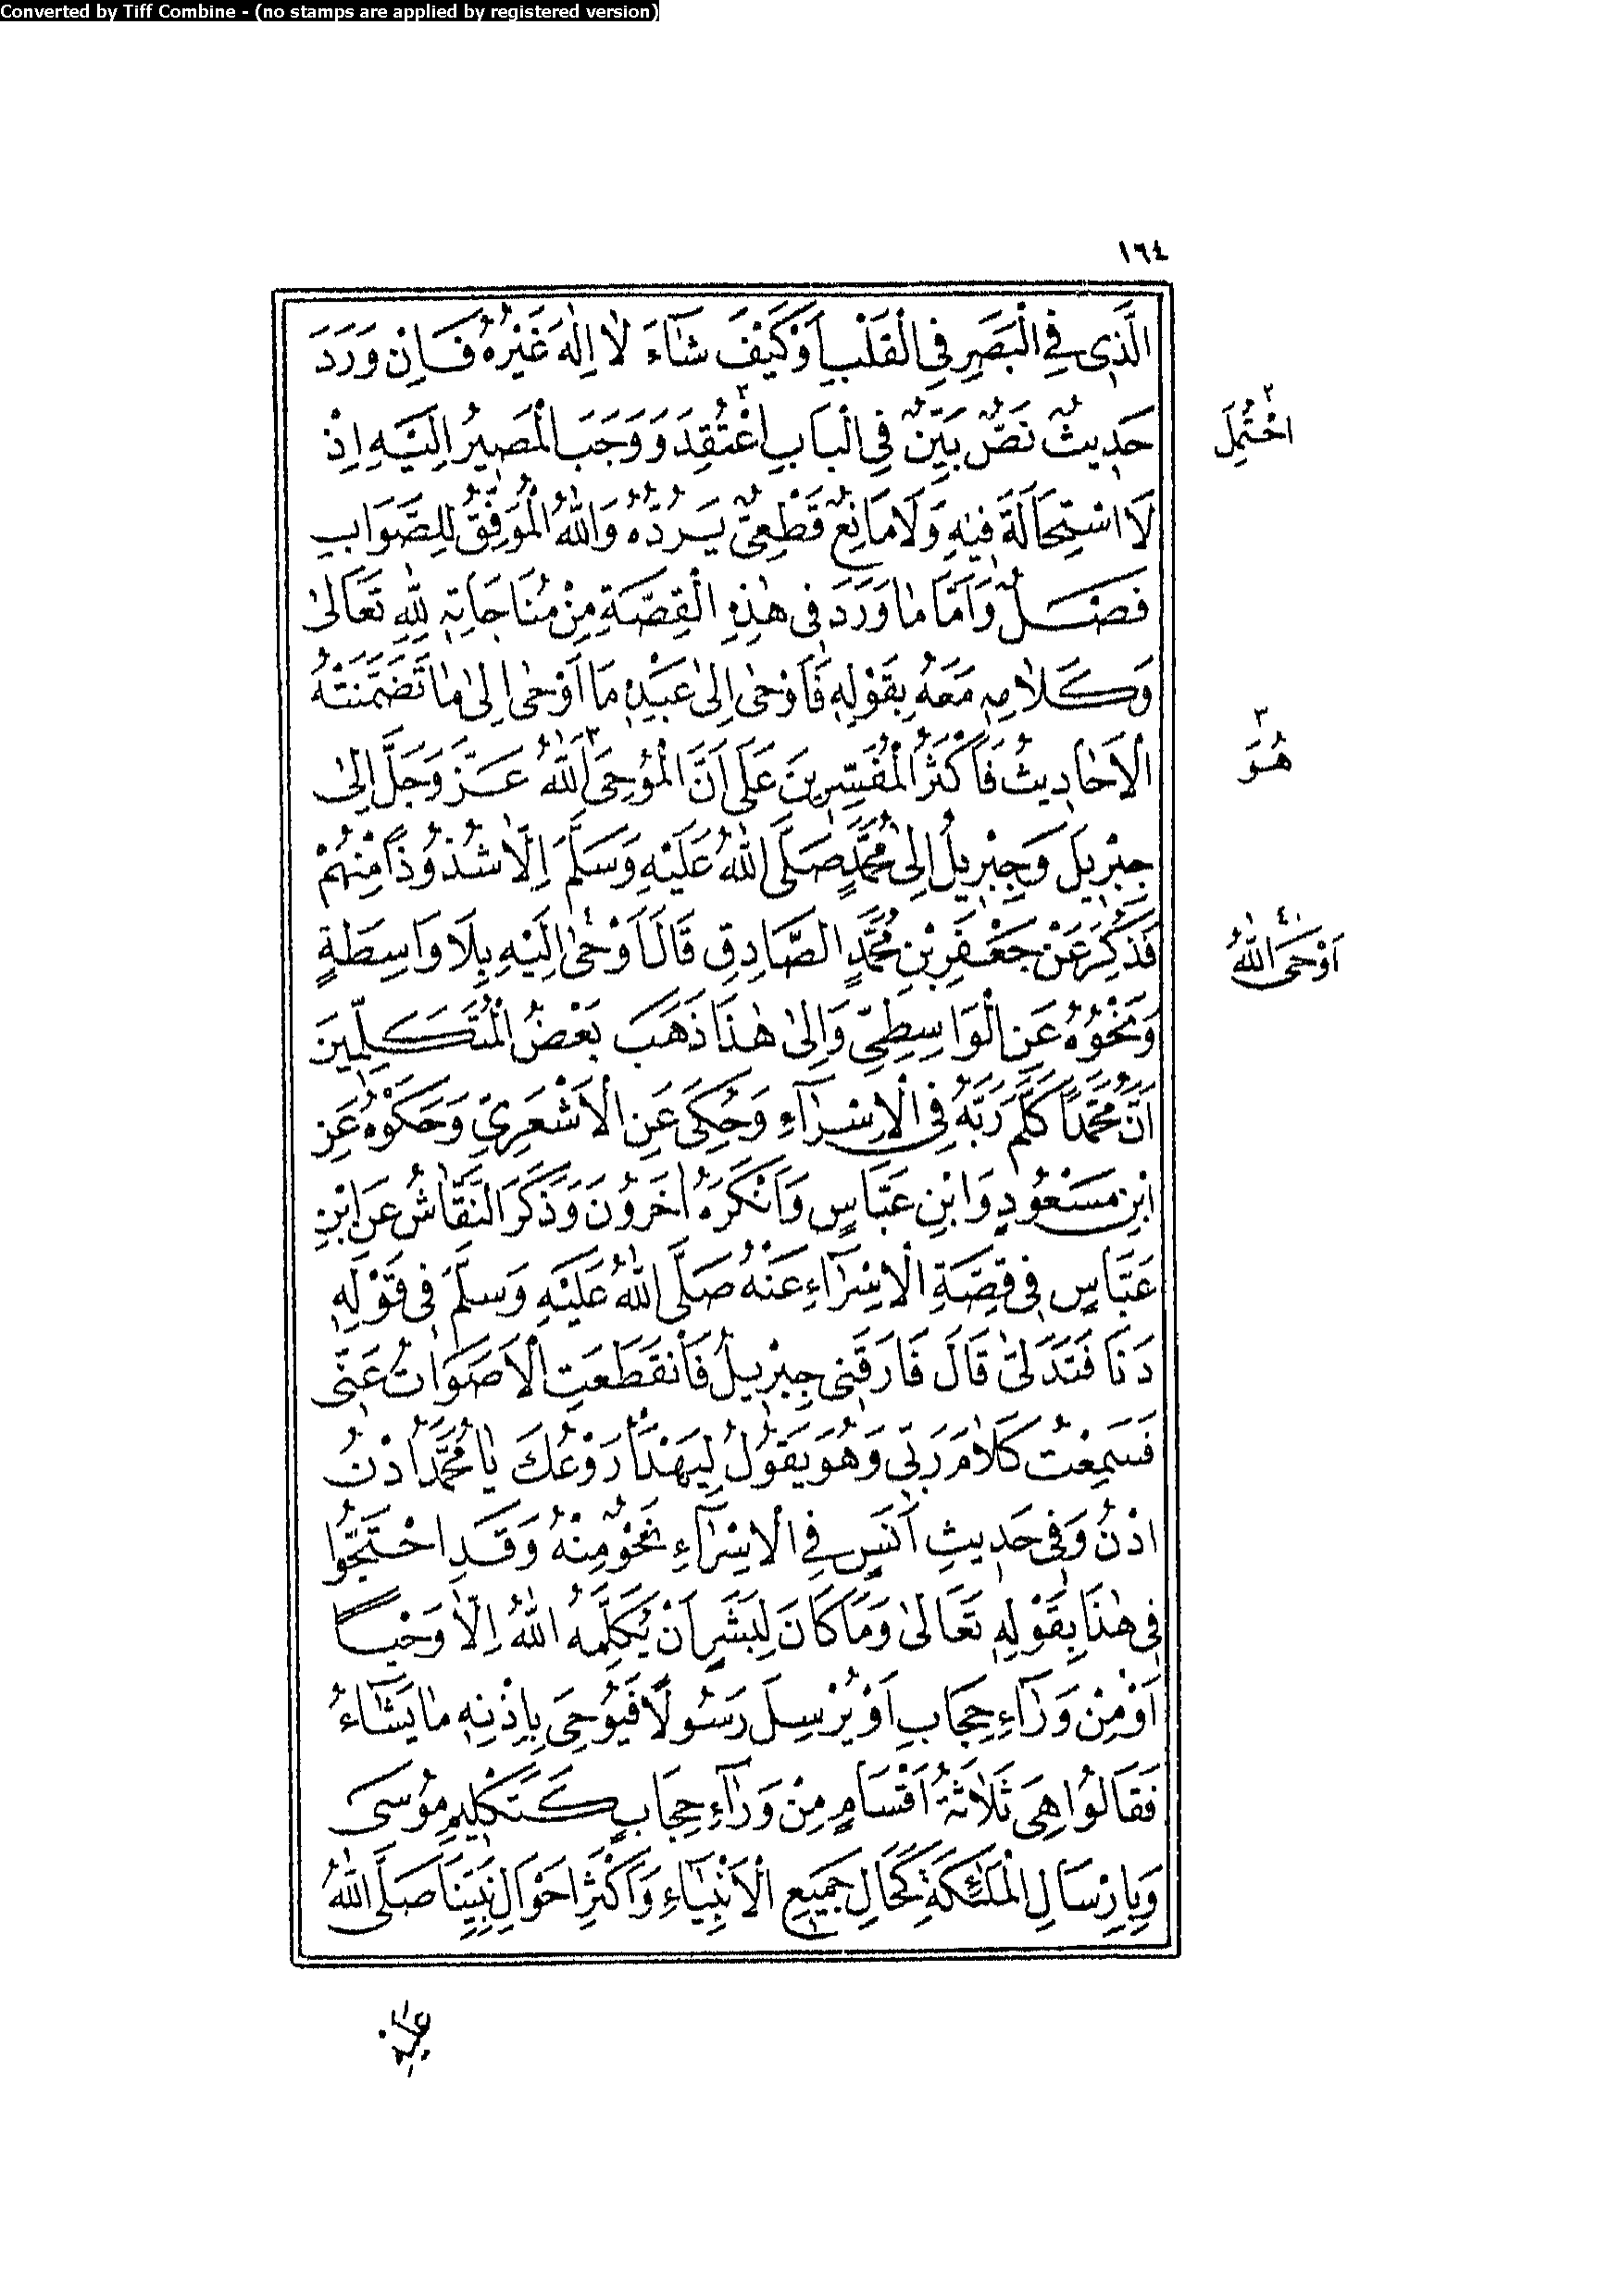 Converted by Tiff Combine - (no stamps are applied by registered version)
١٦٤
الَّذِي فِي الْبَصَرِ فِي الْقَلْبِ اَوْ كَيْفَ شَآءَ لَا اِلٰهَ غَيْرُهُ فَاِنْ وَرَدَ
حَدِيثٌ نَصٌّ بَيِّنٌ فِي الْبَابِ اعْتُقِدَ ٢ وَوَجَبَ الْمَصِيرُ اِلَيْهِ اِذْ
لَا اسْتِحَالَةَ فِيهِ وَلَا مَانِعٌ قَطْعِيٌّ يَرُدُّهُ وَاللّٰهُ الْمُوَفِّقُ لِلصَّوَابِ
فَصْلٌ وَاَمَّا مَا وَرَدَ فِي هٰذِهِ الْقِصَّةِ مِنْ مُنَاجَاتِهِ لِلّٰهِ تَعَالٰى
وَكَلَامِهِ مَعَهُ بِقَوْلِهِ فَاَوْحٰى اِلٰى عَبْدِهِ مَا اَوْحٰى اِلٰى مَا تَضَمَّنَتْهُ
الْاَحَادِيثُ فَاَكْثَرُ الْمُفَسِّرِينَ عَلٰى اَنَّ الْمُوحِيَ ٣ اللّٰهُ عَزَّ وَجَلَّ اِلٰى
جِبْرِيلَ وَجِبْرِيلُ اِلٰى مُحَمَّدٍ صَلَّى اللّٰهُ عَلَيْهِ وَسَلَّمَ اِلَّا شُذُوذًا مِنْهُمْ
فَذُكِرَ عَنْ جَعْفَرِ بْنِ مُحَمَّدٍ الصَّادِقِ قَالَ اَوْحٰى ٤ اِلَيْهِ بِلَا وَاسِطَةٍ
وَنَحْوُهُ عَنِ الْوَاسِطِيِّ وَاِلٰى هٰذَا ذَهَبَ بَعْضُ الْمُتَكَلِّمِينَ
اَنَّ مُحَمَّدًا كَلَّمَ رَبَّهُ فِي الْاِسْرَآءِ وَحُكِيَ عَنِ الْاَشْعَرِيِّ وَحَكَوْهُ عَنِ
ابْنِ مَسْعُودٍ وَابْنِ عَبَّاسٍ وَاَنْكَرَهُ اٰخَرُونَ وَذَكَرَ النَّقَّاشُ عَنِ ابْنِ
عَبَّاسٍ فِي قِصَّةِ الْاِسْرَآءِ عَنْهُ صَلَّى اللّٰهُ عَلَيْهِ وَسَلَّمَ فِي قَوْلِهِ
دَنَا فَتَدَلّٰى قَالَ فَارَقَنِي جِبْرِيلُ فَانْقَطَعَتِ الْاَصْوَاتُ عَنِّي
فَسَمِعْتُ كَلَامَ رَبِّي وَهُوَ يَقُولُ لِيَهْدَأْ رَوْعُكَ يَا مُحَمَّدُ ادْنُ
ادْنُ وَفِي حَدِيثِ اَنَسٍ فِي الْاِسْرَآءِ نَحْوٌ مِنْهُ وَقَدِ احْتَجُّوا
فِي هٰذَا بِقَوْلِهِ تَعَالٰى وَمَا كَانَ لِبَشَرٍ اَنْ يُكَلِّمَهُ اللّٰهُ اِلَّا وَحْيًا
اَوْ مِنْ وَرَآءِ حِجَابٍ اَوْ يُرْسِلَ رَسُولًا فَيُوحِيَ بِاِذْنِهِ مَا يَشَآءُ
فَقَالُوا هِيَ ثَلَاثَةُ اَقْسَامٍ مِنْ وَرَآءِ حِجَابٍ كَتَكْلِيمِ مُوسٰى
وَبِاِرْسَالِ الْمَلٰئِكَةِ كَحَالِ جَمِيعِ الْاَنْبِيَآءِ وَاَكْثَرِ اَحْوَالِ نَبِيِّنَا صَلَّى اللّٰهُ
٢ احْتُمِلَ
٣ هُوَ
٤ اَوْحَى اللّٰهُ
عليه